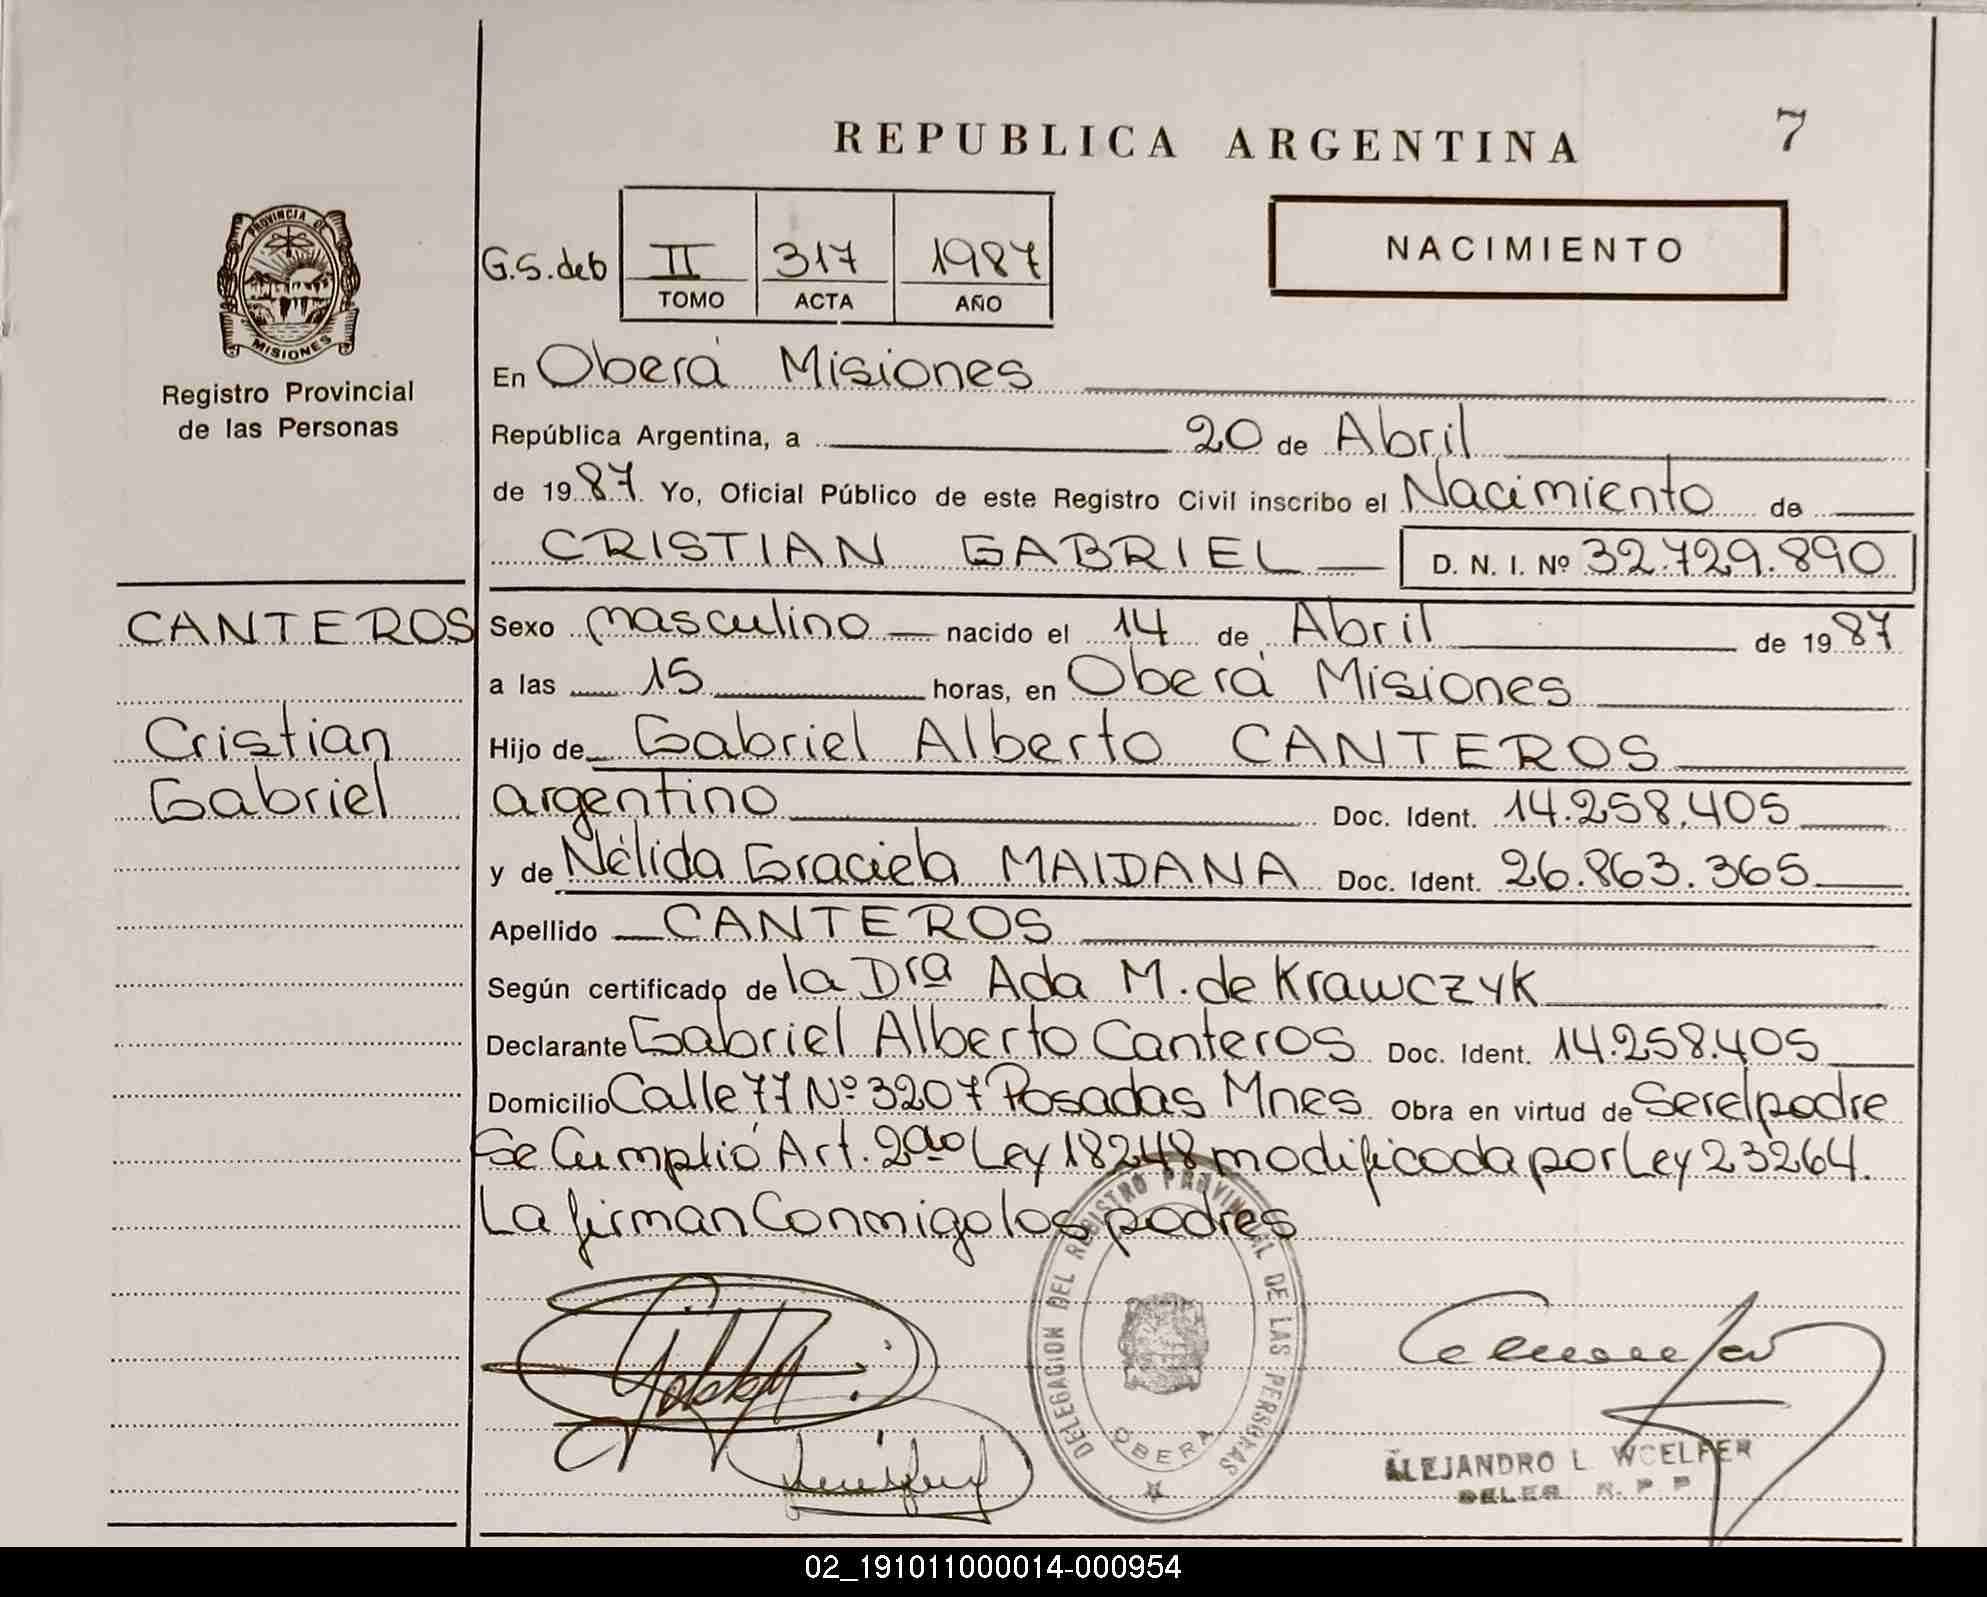 REPUBLICA ARGENTINA
7
PROVINCIA DE MISIONES
Registro Provincial
de las Personas
G.S. deb
II 317 1987
TOMO ACTA AÑO
NACIMIENTO
En Oberá Misiones
República Argentina, a 20 de Abril
de 1987. Yo, Oficial Público de este Registro Civil inscribo el Nacimiento de
CRISTIAN GABRIEL D. N. I. Nº 32.729.890
CANTEROS
Cristian
Gabriel
Sexo masculino nacido el 14 de Abril de 1987
a las 15 horas, en Oberá Misiones
Hijo de Gabriel Alberto CANTEROS
argentino Doc. Ident. 14.258.405
y de Nélida Graciela MAIDANA Doc. Ident. 26.863.365
Apellido CANTEROS
Según certificado de la Dra Ada M. de Krawczyk
Declarante Gabriel Alberto Canteros Doc. Ident. 14.258.405
Domicilio Calle 77 Nº 3207 Posadas Mnes Obra en virtud de Ser el padre
Se Cumplió Art. 2do Ley 18248 modificada por Ley 23264.
La firman Conmigo los padres
DELEGACION DEL REGISTRO PROVINCIAL DE LAS PERSONAS
OBERA
ALEJANDRO L. WOELFER
DELEG. R. P. P.
02_191011000014-000954